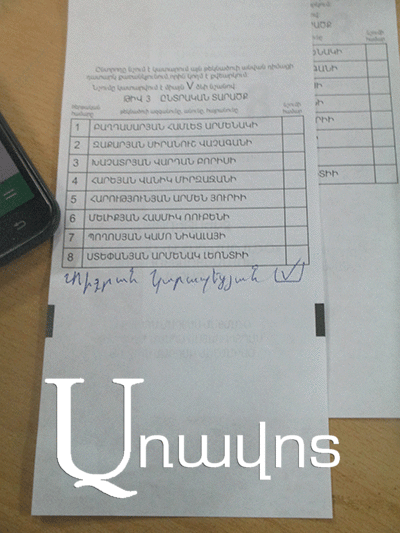 Ընտրողը նշում է կատարում այն թեկնածուի անվան դիմացի
դատարկ քառանկյունում, որին կողմ է քվեարկում
Նշումը կատարվում է միայն V ձևի նշանով
ԹԻՎ 3 ԸՆՏՐԱԿԱՆ ՏԱՐԱԾՔ
Հերթական համարը թեկնածուի ազգանունը, անունը, հայրանունը Նշումի համար
1 ԲԱՂԴԱՍԱՐՅԱՆ ՀԱՄԼԵՏ ԱՐՄԵՆԱԿԻ
2 ԶԱՔԱՐՅԱՆ ՍԻՐԱՆՈՒՇ ՎԱՉԱԳԱՆԻ
3 ԽԱՉԱՏՐՅԱՆ ՎԱՐԴԱՆ ԲՈՐԻՍԻ
4 ՀԱՐԵՅԱՆ ՎԱՆԻԿ ՄԻՐԶԱՋԱՆԻ
5 ՀԱՐՈՒԹՅՈՒՆՅԱՆ ԱՐՄԵՆ ՅՈՒՐԻԻ
6 ՄԵԼԻՔՅԱՆ ՀԱՍՄԻԿ ՌՈՒԲԵՆԻ
7 ՊՈՂՈՍՅԱՆ ԿԱՄՈ ՆԻԿԱԼԱՅԻ
8 ՍՏԵՓԱՆՅԱՆ ԱՐՄԵՆԱԿ ԼԵՈՆՏԻԻ
Կարապետյան
Առավոտ